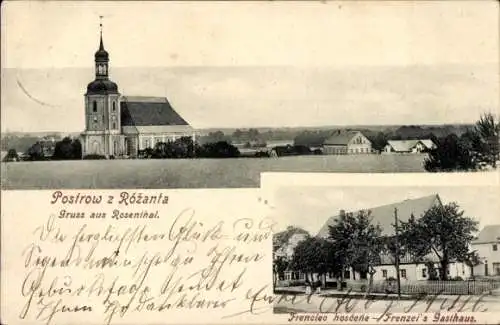 Postrow z Róžanta
Gruss aus Rosenthal.
Die herzlichsten Glück- und
Segenswünsche zu Ihrem
Geburtstage
Ihre dankbare
Frencleo hosćeńe — Frenzel's Gasthaus.